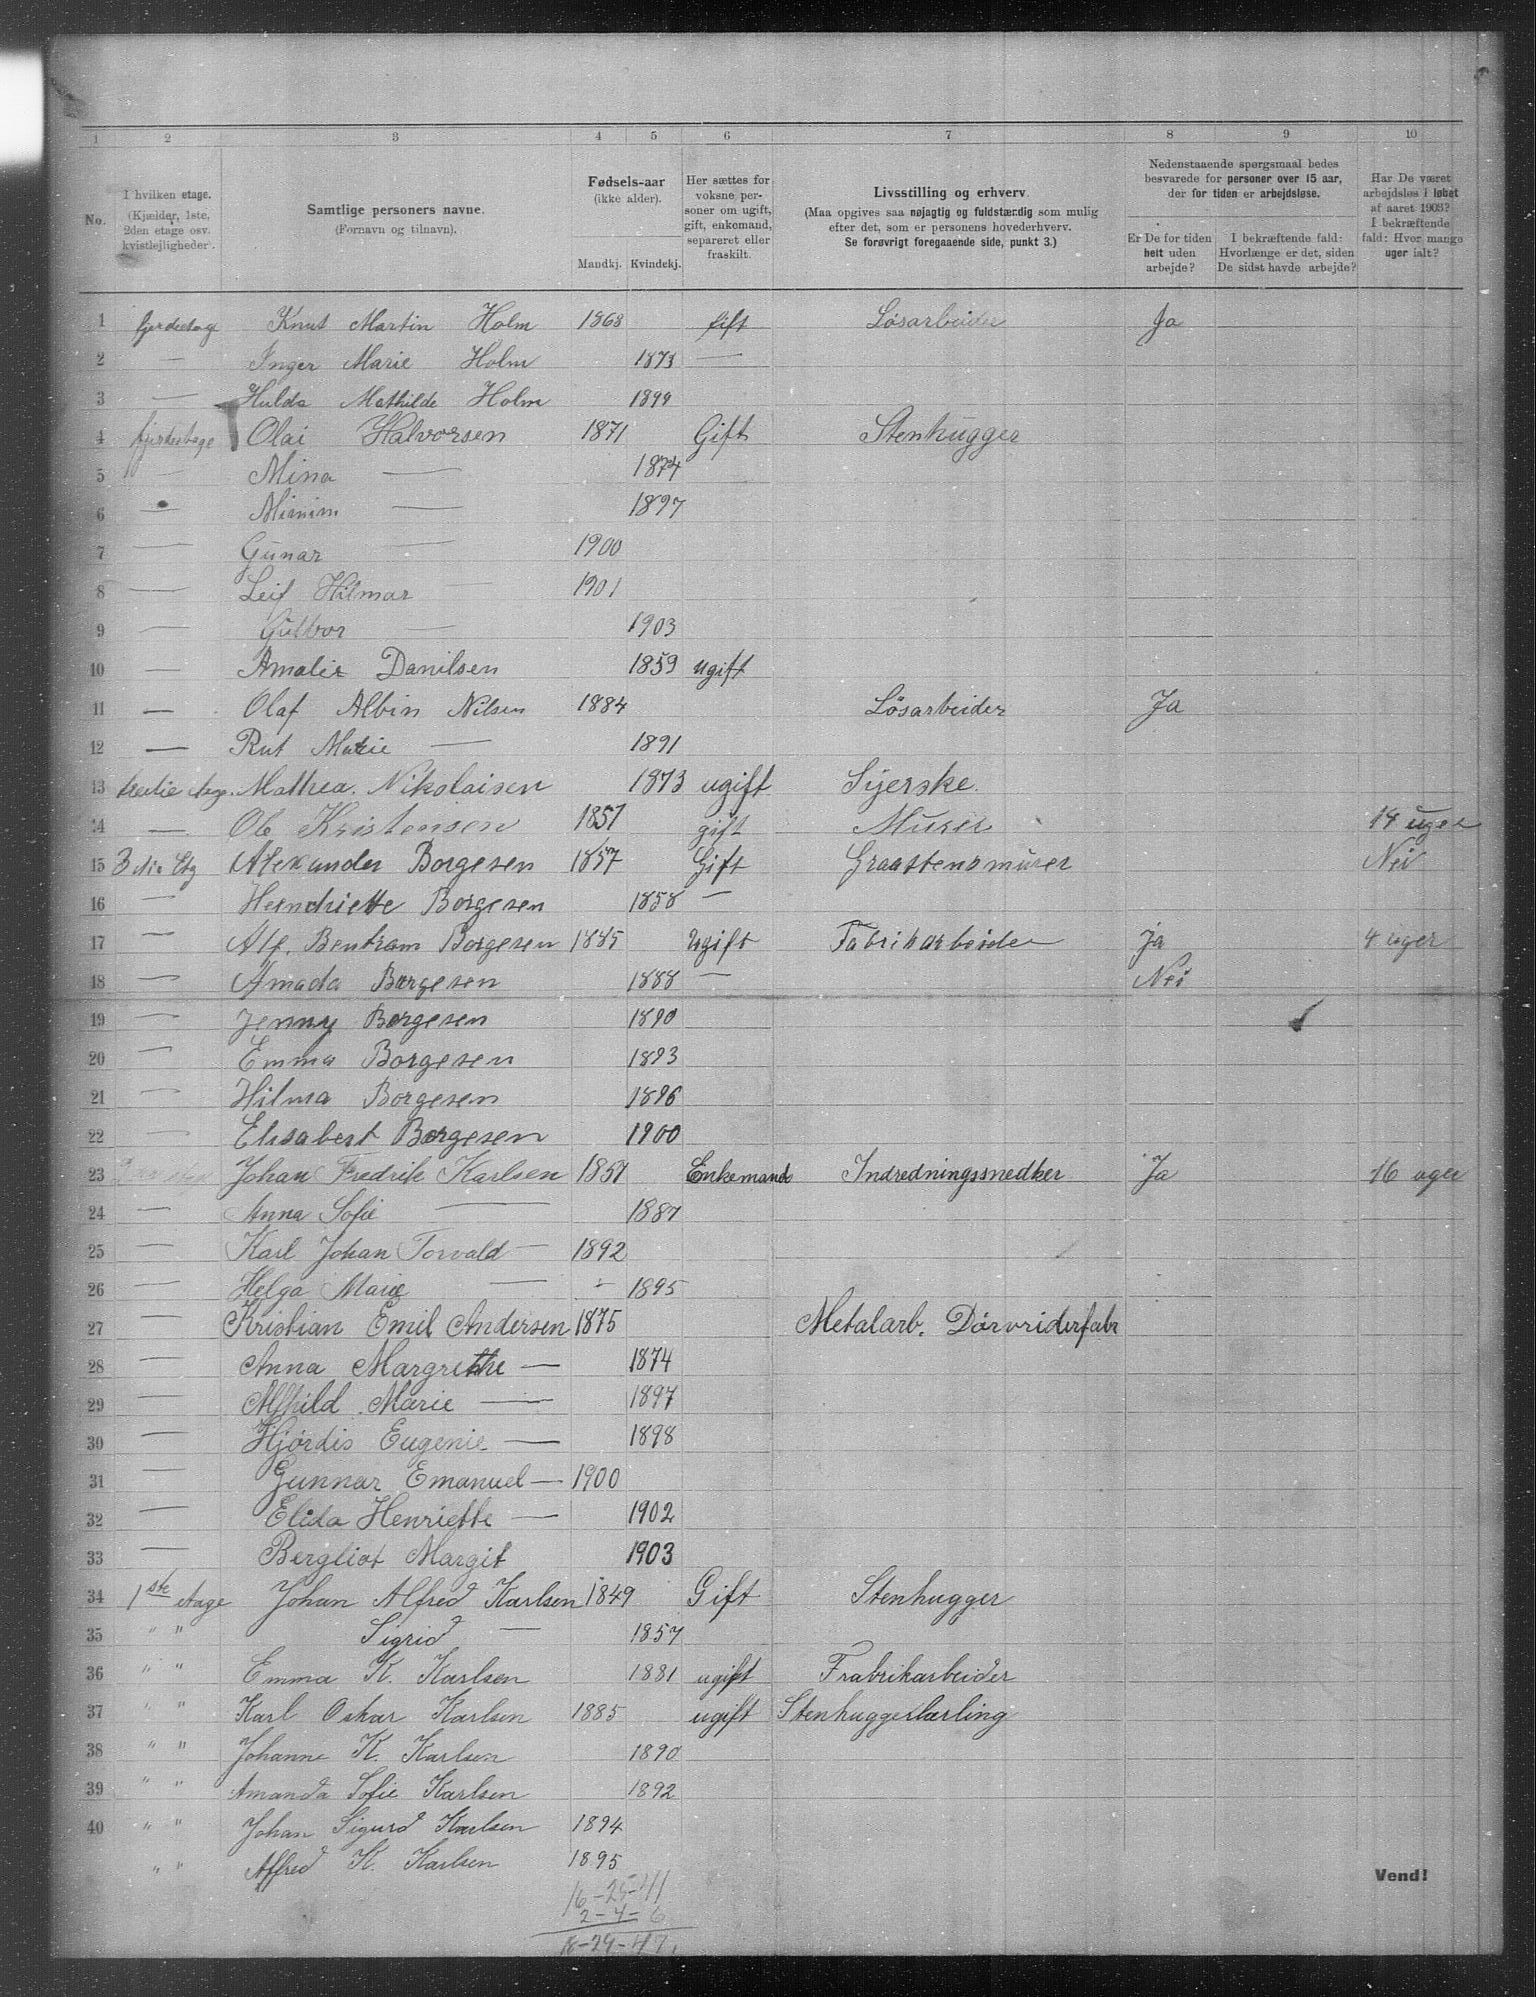 1 2 3 4 5 6 7 8 9 10
No.
I hvilken etage.
(Kjælder, 1ste,
2den etage osv.
kvistlejligheder.
Samtlige personers navne.
(Fornavn og tilnavn).
Fødsels-aar
(ikke alder).
Mandkj. Kvindekj.
Her sættes for
voksne per-
soner om ugift,
gift, enkemand,
separeret eller
fraskilt.
Livsstilling og erhverv
(Maa opgives saa nøjagtig og fuldstændig som mulig
efter det, som er personens hovederhverv.
Se forøvrigt foregaaende side, punkt 3.)
Nedenstaaende spørgsmaal bedes
besvarede for personer over 15 aar,
der for tiden er arbejdsløse.
Er De for tiden
helt uden
arbejde?
I bekræftende fald:
Hvorlænge er det, siden
De sidst havde arbejde?
Har De været
arbejdsløs i løbet
af aaret 1903?
I bekræftende
fald: Hvor mange
uger ialt?
1 fjerdeetage Knut Martin Holm 1868 Gift Løsarbeider Ja
2 — Inger Marie Holm 1873 —
3 — Hulda Mathilde Holm 1899
4 fjerdeetage Olai Halvorsen 1871 Gift Stenhugger
5 — Mina — 1874
6 — Mimim — 1897
7 — Gunar — 1900
8 — Leif Hilmar — 1901
9 — Gulbor — 1903
10 — Amalie Danilsen 1859 ugift
11 — Olaf Albin Nilsen 1884 Løsarbeider Ja
12 — Rut Marie — 1891
13 tredie etage. Mathea. Nikolaisen 1873 ugift Syerske.
14 — Ole Kristensen 1851 gift Murer 14 uger
15 3die Etg Alexander Borgesen 1857 Gift Graastensmurer Nei
16 — Hendriette Borgesen 1858 —
17 — Alf. Bentram Borgesen 1885 Ugift Fabrikarbeider ja 4 uger
18 — Amada Borgesen 1888 — Nei
19 — Jenny Borgesen 1890
20 — Emma Borgesen 1893
21 — Hilma Borgesen 1896
22 — Elisabert Borgesen 1900
23 Johan Fredrik Karlsen 1851 Enkemand Indredningssnedker Ja 16 uger
24 — Anna Sofie — 1887
25 — Karl Johan Torvald — 1892
26 — Helga Marie — 1895
27 — Kristian Emil Andersen 1875 Metalarb. Dørvriderfabr
28 — Anna Margrethe — 1874
29 — Alfhild Marie — 1897
30 — Hjørdis Eugenie — 1898
31 — Gunnar Emanuel — 1900
32 — Elida Henriette — 1902
33 — Bergliot Margit 1903
34 1ste etage Johan Alfred Karlsen 1849 Gift Stenhugger
35 " " Sigrid — 1857
36 " " Emma K. Karlsen 1881 ugift Frabrikarbeider
37 " " Karl Oskar Karlsen 1885 ugift Stenhuggerlærling
38 " " Johanne K. Karlsen 1890
39 " " Amanda Sofie Karlsen 1892
40 " " Johan Sigurd Karlsen 1894
" " Alfred K. Karlsen 1895
Vend!
16-25-41
2-4-6
18-29-47